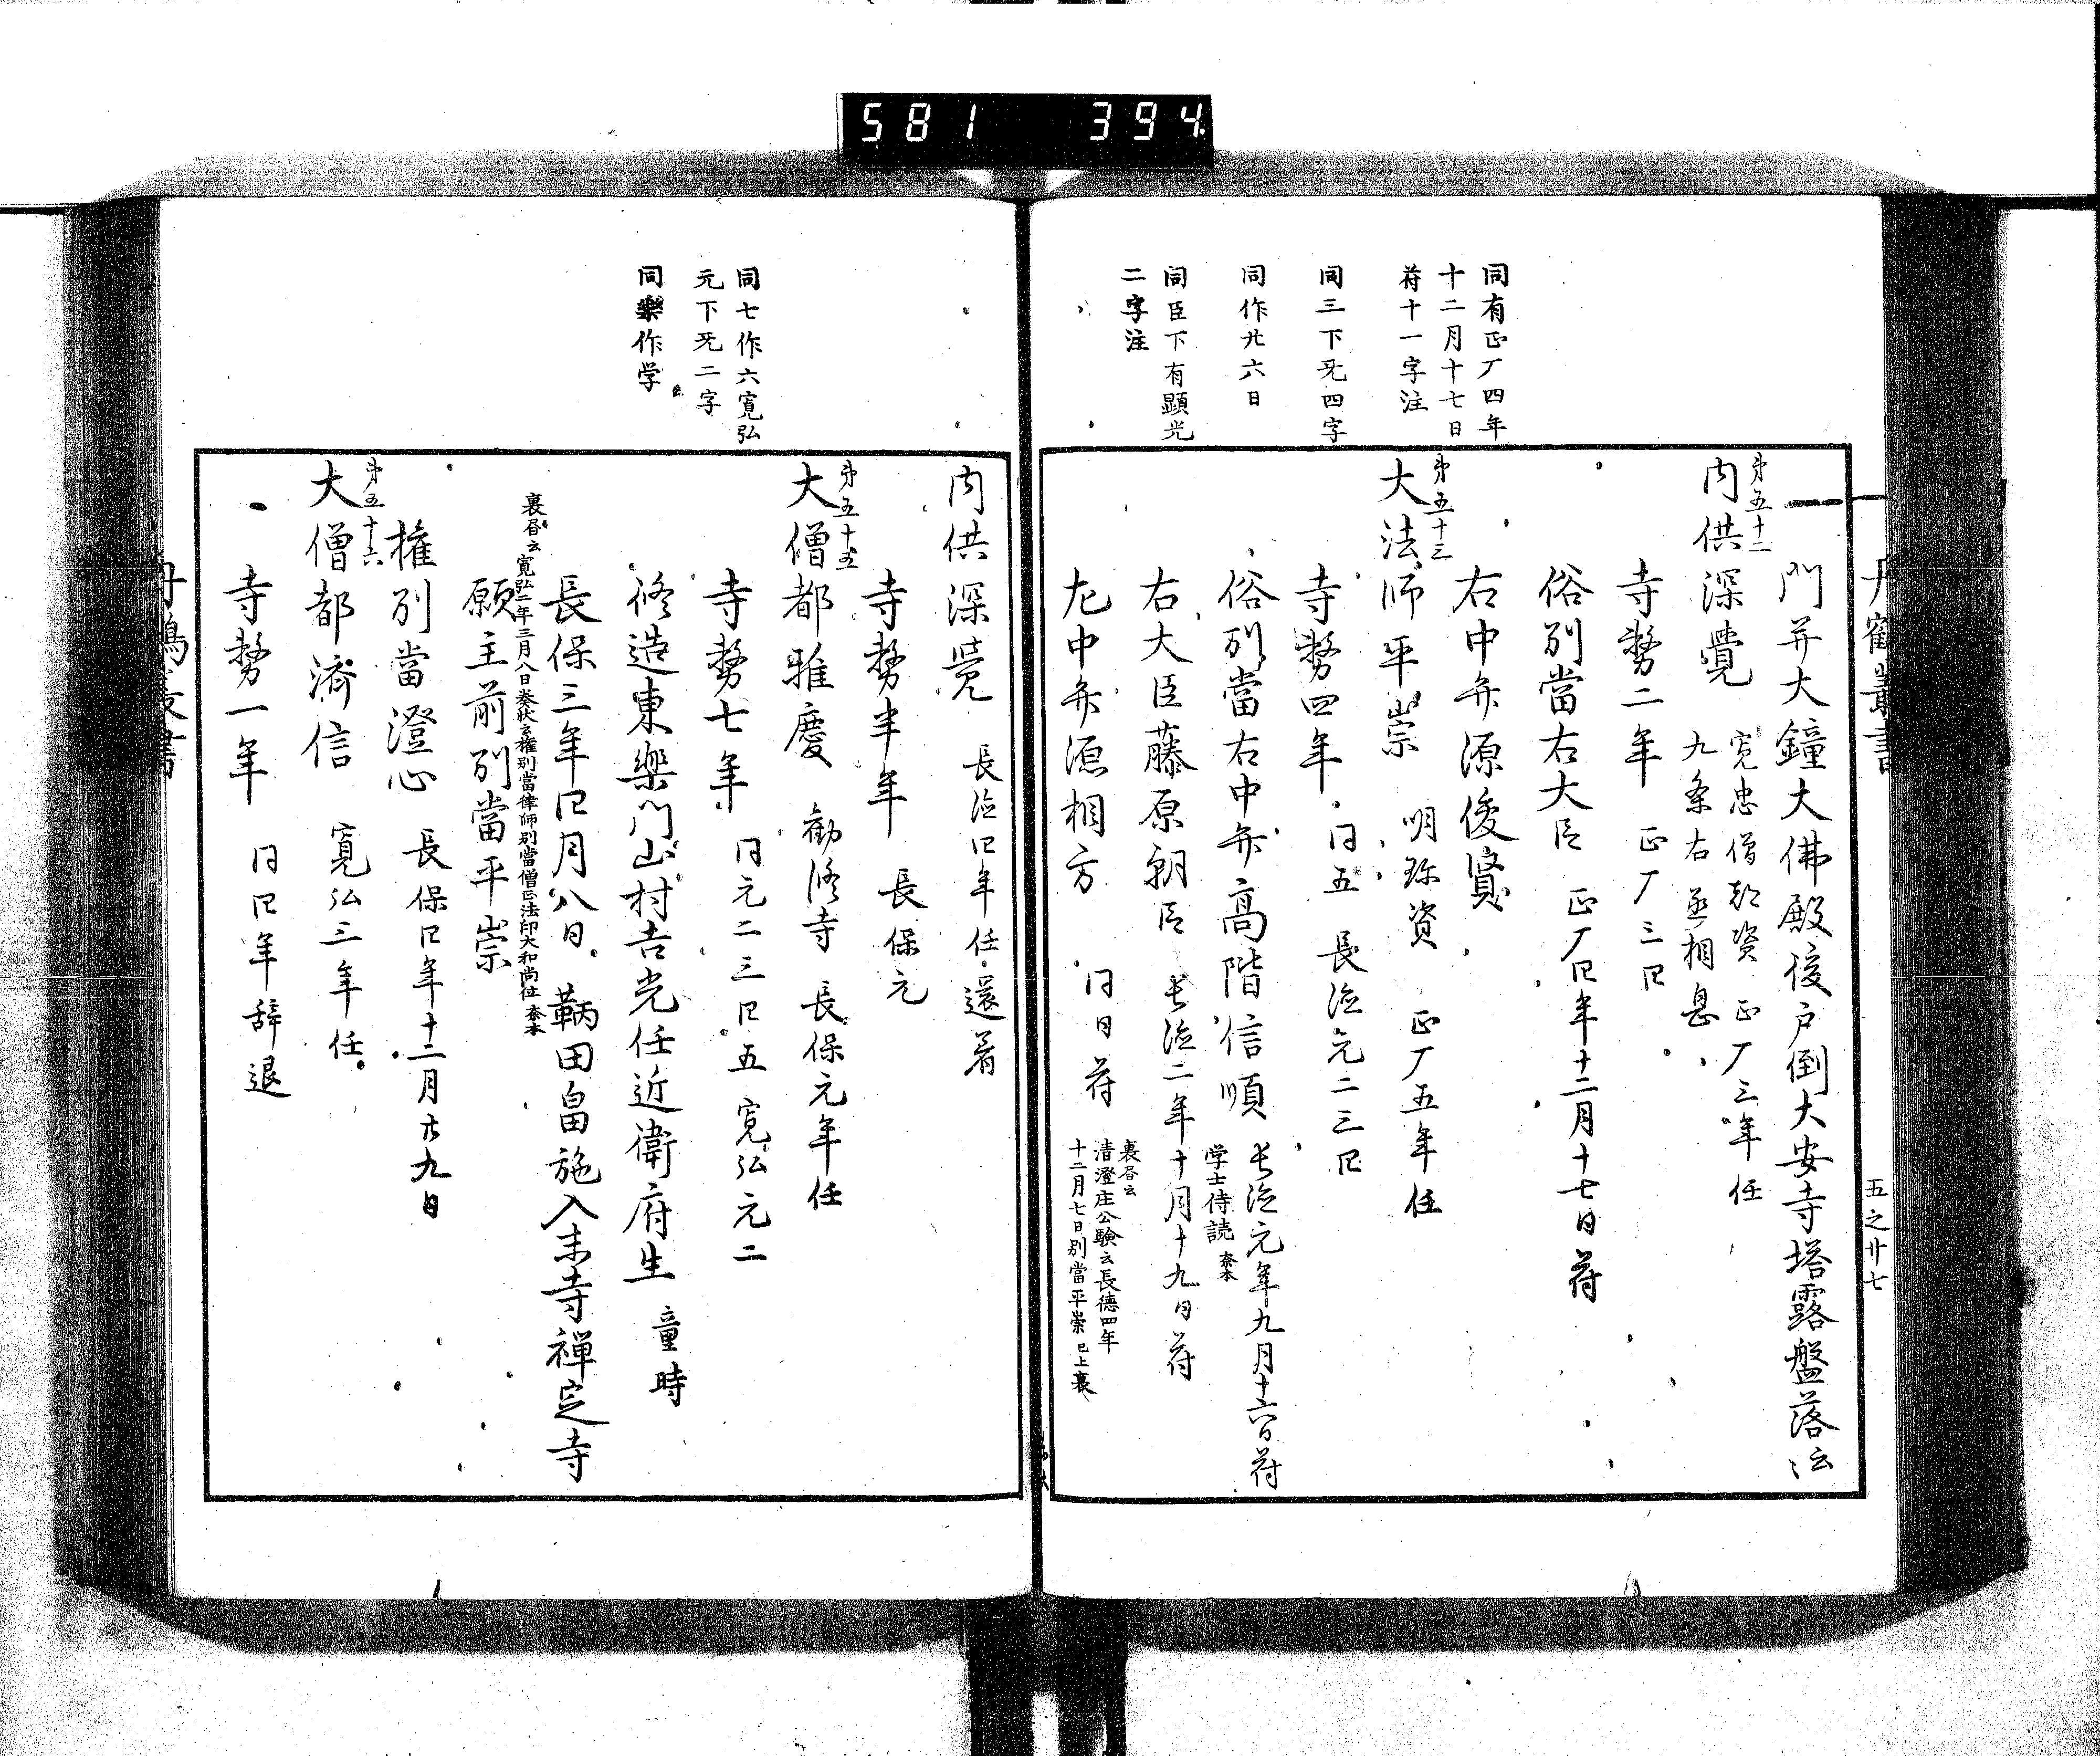 581 394
丹鶴叢書
五之廿七
同有正厂四年
十二月十七日
苻十一字注
同三下旡四字
同作廿六日
同臣下有顕光
二字注
門并大鐘大佛殿後戸倒大安寺塔露盤落云〻
第五十二
内供深覺 寛忠僧都資 正厂三年任
九条右丞相息
寺勢二年 正厂三四
俗別當右大臣 正厂四年十二月十七日苻
右中弁源俊賢
第五十三
大法師平崇 明珎資 正厂五年任
寺勢四年 同五 長徳元二三四
俗別當右中弁高階信順 長徳元年九月十六日苻
学士待読 奈本
右大臣藤原朝臣 長徳二年十月十九日苻
左中弁源相方 同日苻
裏書云
清澄庄公験云長徳四年
十二月七日別當平崇 已上裏
同七作六寛弘
元下旡二字
同樂作学
内供深覺 長徳四年任還着
寺勢半年 長保元
第五十五
大僧都雅慶 勧修寺 長保元年任
寺勢七年 同元二三四五 寛弘元二
修造東樂門山村吉光任近衛府生 童時
長保三年四月八日 鞆田畠施入末寺禅定寺
裏書云 寛弘二年三月八日奏状云権別當律師別當僧正法印大和尚位 奈本
願主前別當平崇
権別當澄心 長保四年十二月廿九日
第五十六
大僧都済信 寛弘三年任
寺勢一年 同四年辞退